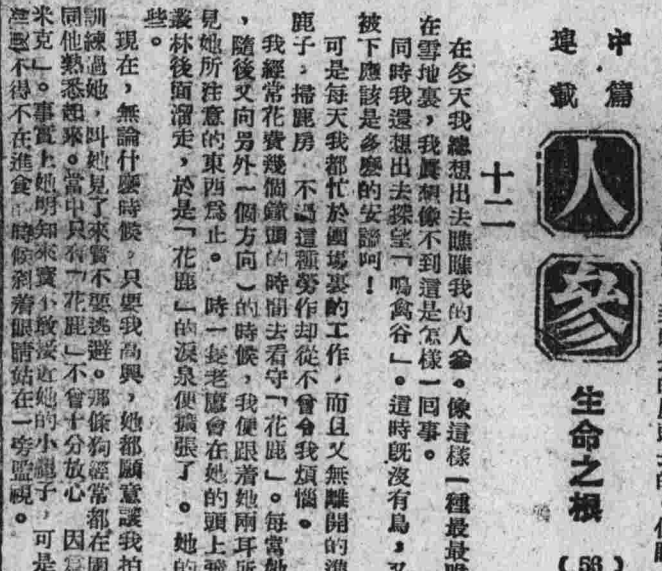 中篇
連載
人參
生命之根
(56)
十二
在冬天我總想出去瞧瞧我的人參。像這樣一種最最
在雪地裏，我眞想像不到這是怎樣一回事。
同時我還想出去探望「鳴禽谷」。這時旣沒有鳥，又
被下應該是多麼的安謐呵！
可是每天我都忙於園場裏的工作，而且又無離開的
鹿子，掃鹿房，不過這種勞作却從不曾令我煩惱。
我經常花費幾個鐘頭的時間去看守「花鹿」。每當她
，隨後又向另外一個方向）的時候，我便跟着她兩耳所
見她所注意的東西爲止。一時一隻老鷹會在她的頭上飛
叢林後面溜走，於是「花鹿」的淚泉便擴張了。她的
些。
現在，無論什麼時候，只要我高興，她都願意讓我拍
訓練過她，叫她見了來賓不要逃避。那條狗經常都在園
同他熟悉起來。當中只有「花鹿」不曾十分放心，因爲
米克」。事實上她明知來賓不敢接近她的小鹿子，可是
不得不在進食的時候剎着眼睛站在一旁監視。